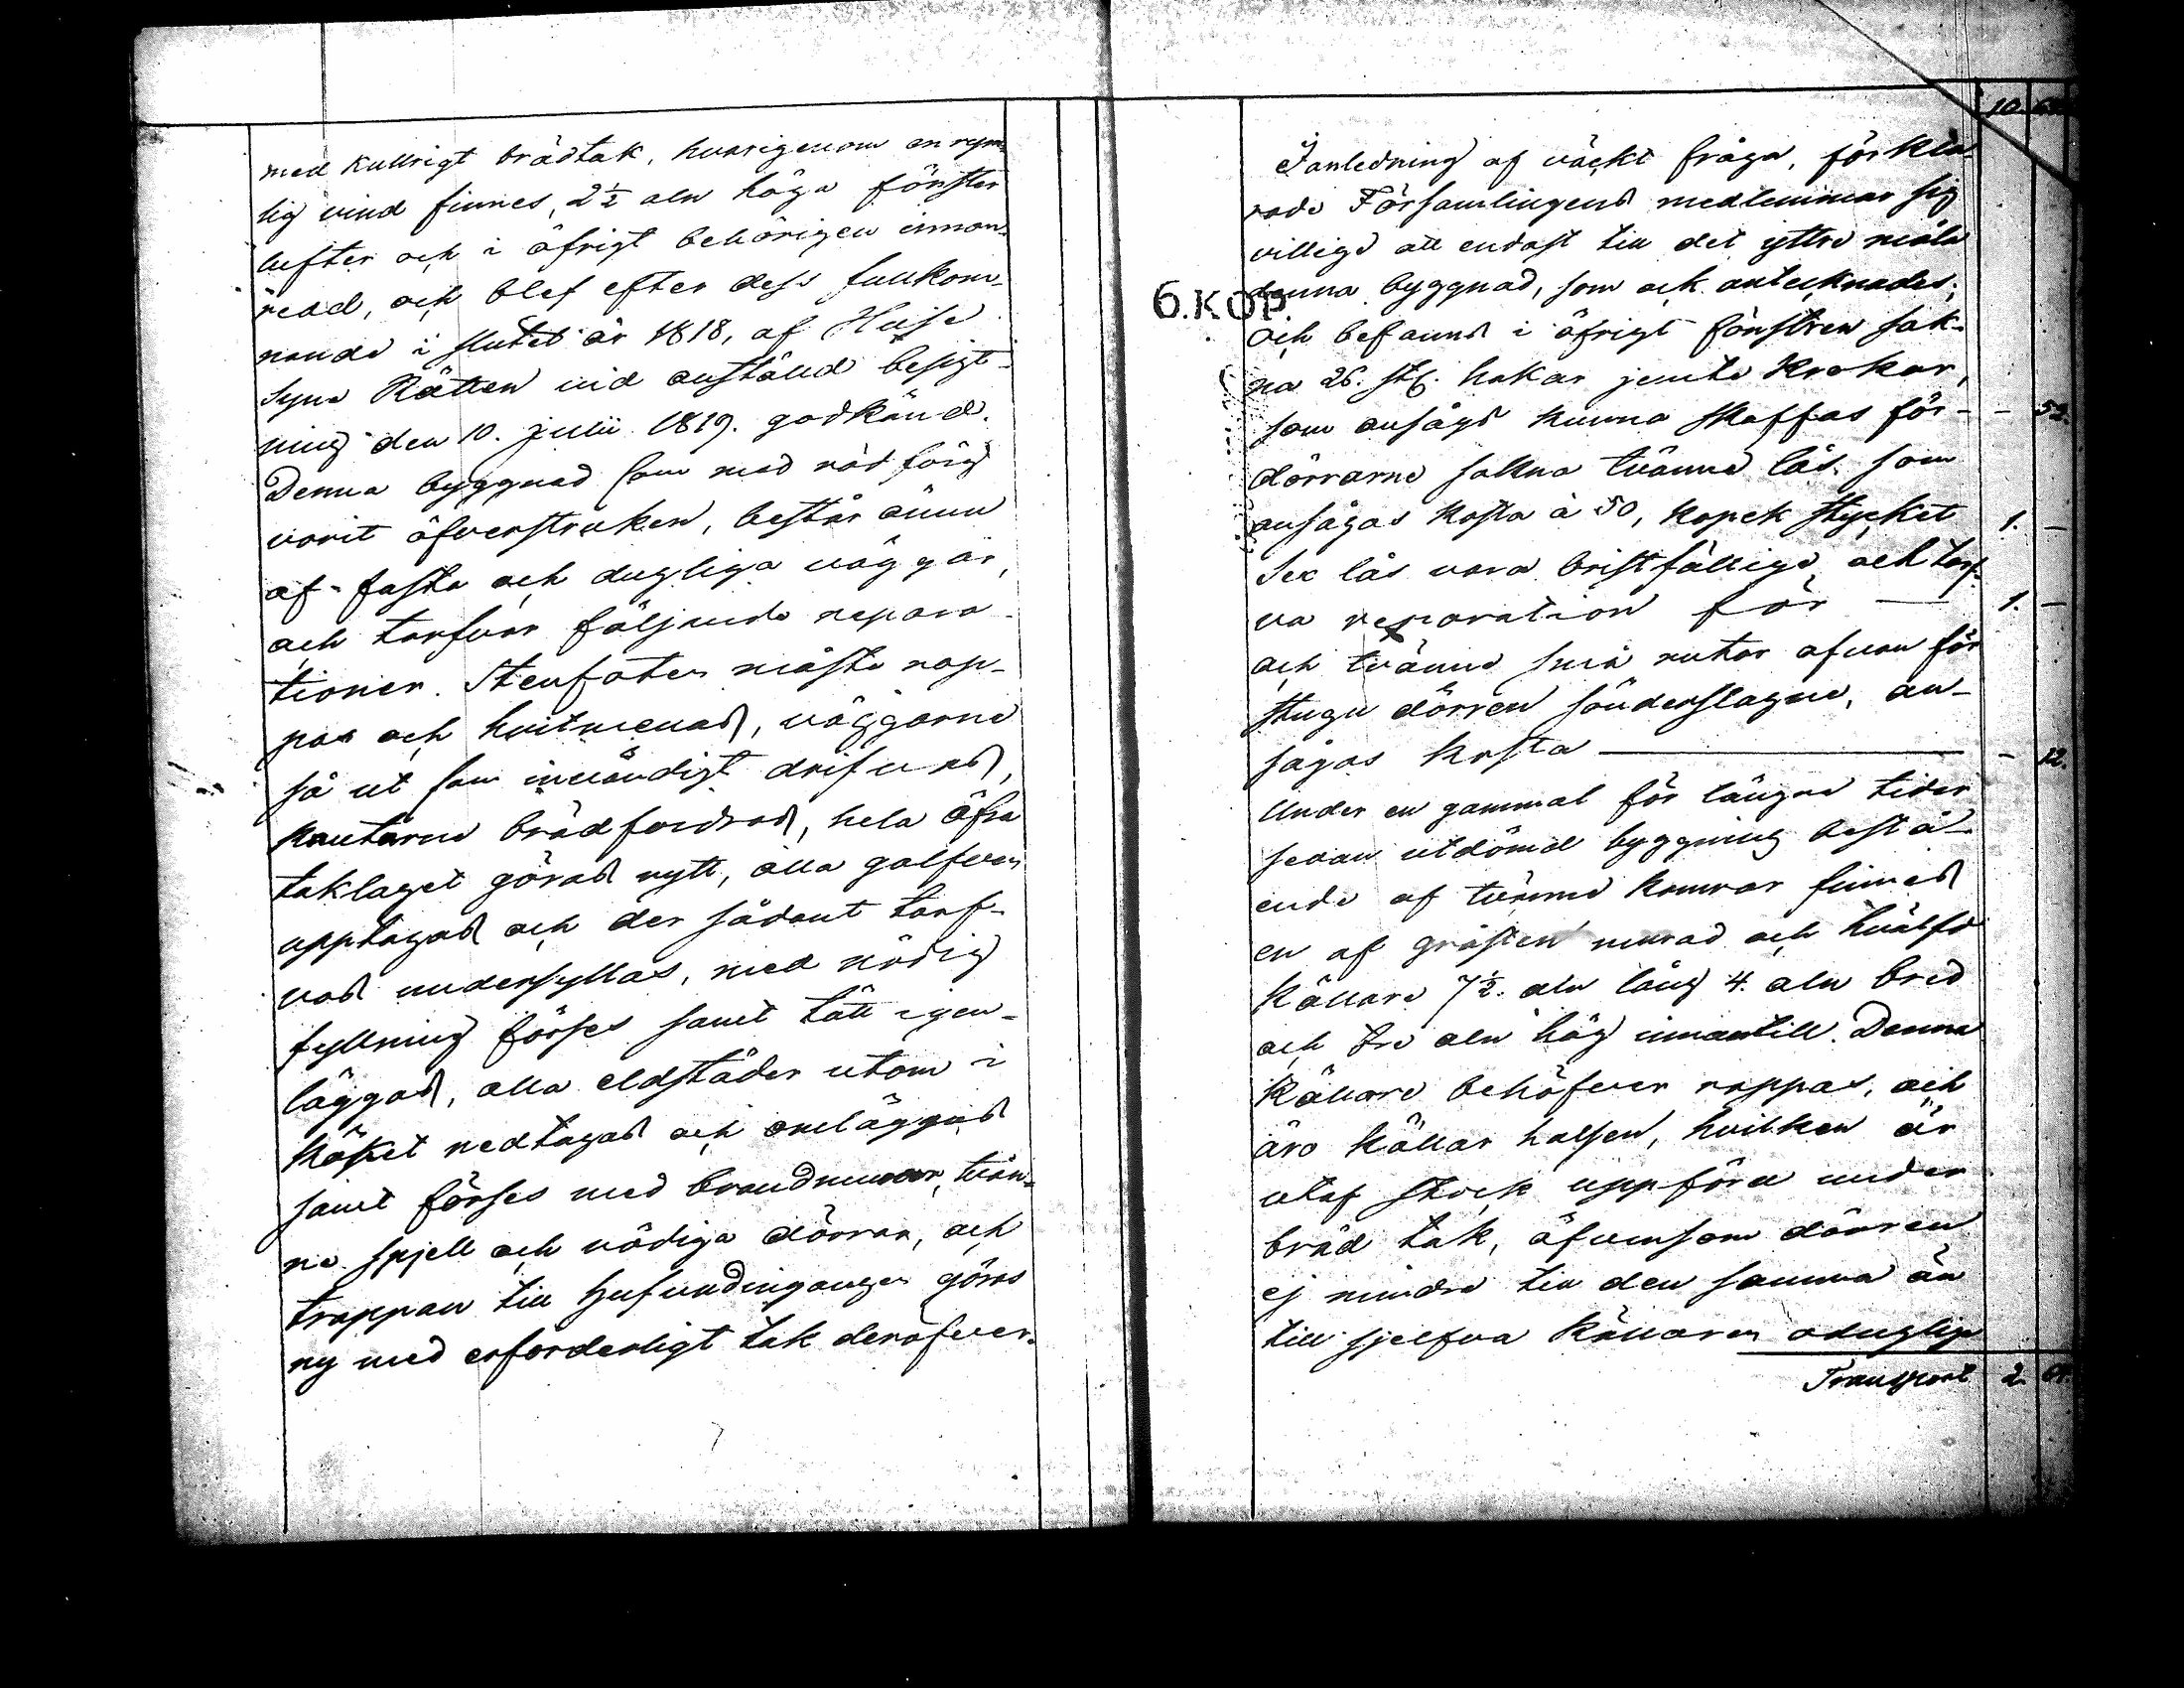 med kullrigt brädtak, hvarigenom en rym-
lig vind finnes, 2½ aln höga fönster
lufter och i öfrigt behörigen innan-
redd, och blef efter dess fullkom-
nande i slutet år 1818, af Huse
Syns Rätten vid anstäld besigt-
ning den 10. Julii 1819. godkänd.
Denna byggnad som med röd färg
varit öfverstruken, består ännu
af fasta och dugliga väggar,
och tarfvar följande repara-
tioner. Stenfoten måste rap-
pas och hvitmenas, väggarne
så ut som invändigt drifvas,
knutarne brädfordras, hela öfra
taklaget göras nytt, alla golfven
upptagas och der sådant tarf-
vas undersyllas, med nödig
fyllning förses samt tätt igen-
läggas, alla eldstäder utom i
köket nedtagas och omläggas
samt förses med brandmurar, tvän-
ne spjell och nödiga dörrar, och
trappan till hufvudingången göras
ny med erforderligt tak deröfver.
10.
6.KOP.
I anledning af väckt fråga, förkla-
rade Församlingens medlemmar sig
villige att endast till det yttre måla
denna byggnad, som ock antecknades;
och befanns i öfrigt fönstren sak-
na 26. st. hakar jemte krokar,
som ansågs kunna skaffas för - - 52.
dörrarne sakna tvänne lås som
ansågas kosta à 50, kopek stycket 1. -
Sex lås vara bristfällige och tarf-
va reparation för — 1. -
och tvänne små rutor ofvan för
stugu dörren sönderslagne, an-
sågas kosta — - 12.
Under en gammal för längre tider
sedan utdömd byggning bestå-
ende af tvänne kamrar finnes
en af gråsten murad och hvälfd
källare 7½. aln lång 4. aln bred
och tre aln hög innantill. Denna
källare behöfver rappas, och
äro källar halsen, hvilken är
utaf stock uppförd under
bräd tak, äfvensom dörren
ej mindre till den samma än
till sjelfva källaren odugliga
Transport 2. 64.